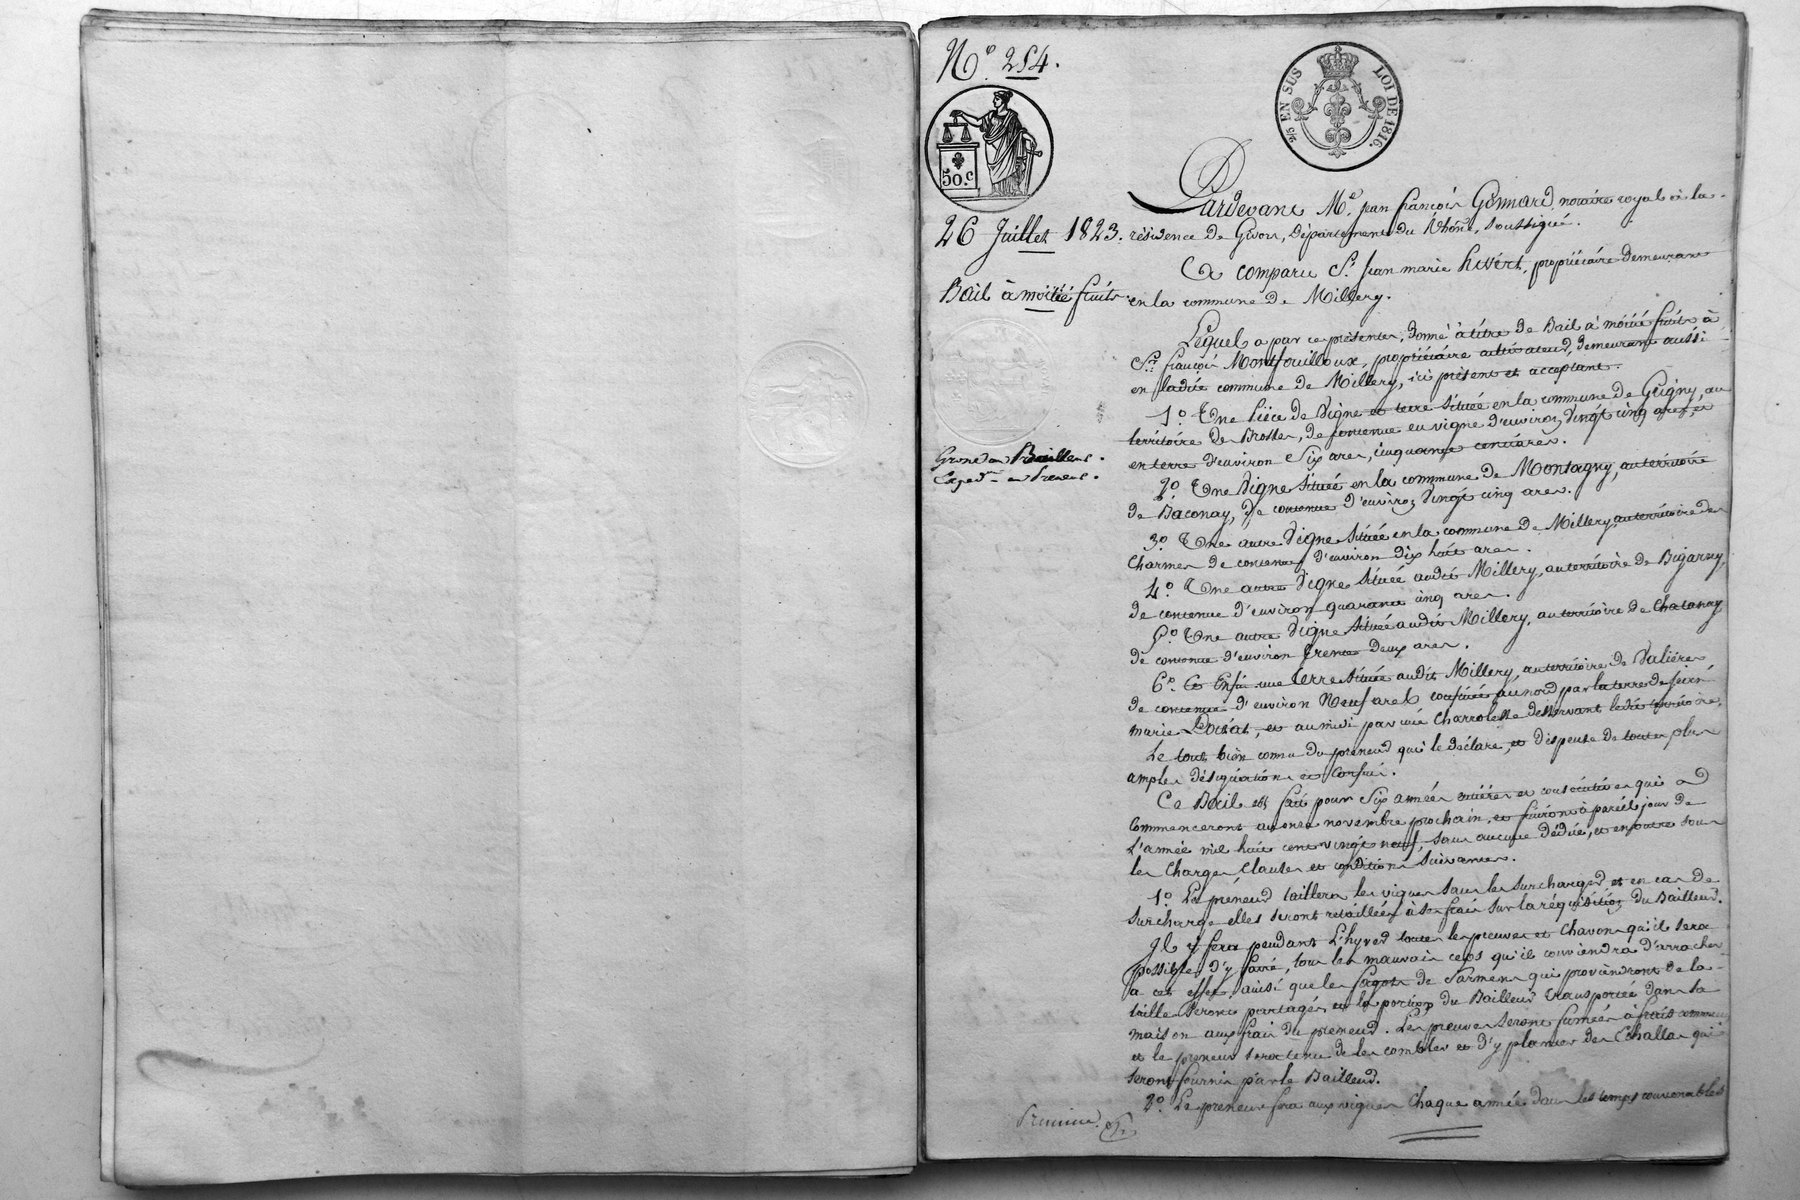 N.o 254.
2/5 EN SUS LOI DE 1816.
50.c
26 Juillet 1823.
Bail à moitié fruits.
Pardevant M.e jean françois Gonnard, notaire royal à la
résidence de Givors, Département du Rhône, soussigné.
A comparu S.r jean marie hivert, propriétaire demeurant
en la commune de Millery.
Lequel a par ces présentes, donné à titre de Bail à moitié fruits à
S.r françois Montfouilloux, propriétaire cultivateur, demeurant aussi
en ladite commune de Millery, ici présent et acceptant.
1.o Une pièce de Vigne et terre située en la commune de Grigny, au
territoire des Brosses, de contenue en vigne d'environ Vingt cinq ares, et
en terre d'environ Six ares, cinquante centiares.
2.o Une Vigne située en la commune de Montagny, au territoire
de Baconay, de contenue d'environ Vingt cinq ares.
3.o Une autre Vigne située en la commune de Millery au territoire des
Charmes de contenue d'environ dix huit ares.
4.o Une autre Vigne située audit Millery, au territoire de Bigarny,
de contenue d'environ quarante cinq ares.
5.o Une autre Vigne située audit Millery, au territoire de Chatanay
de contenue d'environ trente Deux ares.
6.o Et Enfin une Terre située audit Millery, au territoire de Valières
de contenue d'environ Neuf ares, confinée au nord par la terre de
marie et au midi par une Charrolesse desservant ledit territoire,
Le tout bien connu du preneur qui le déclare, et dispense de toutes plus
amples désignations et Confins.
Ce Bail est fait pour Six années entières et consécutives qui
Commenceront au onze novembre prochain, et finiront à pareil jour de
L'année mil huit cent vingt neuf, sans aucune dédite, et en outre sous
les Charges Clauses et conditions Suivantes.
1.o Le preneur taillera les vignes sans les surcharger et en cas de
surcharge elles seront retaillées à ses frais sur la réquisition du Bailleur.
Il y fera pendant L'hyver toutes les preuves et Chavons qu'il sera
possible d'y faire, tous les mauvais ceps qu'il conviendra d'arracher
à cet effet, ainsi que les fagots de Sarmens qui proviendront de la
taille seront partagés, et la portion du Bailleur transportée dans sa
maison aux frais du preneur. Les preuves seront fumées à frais communs
et le preneur sera tenu de les combler et d'y planter des Echallas qui
seront fournis par le Bailleur.
2.o Le preneur fera aux vignes Chaque année dans les temps convenables
Grosse au Bailleur.
Exped.on au Preneur.